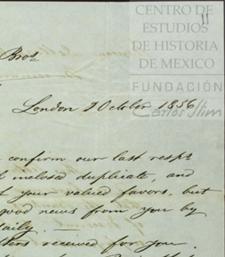 CENTRO DE
ESTUDIOS
DE HISTORIA
DE MEXICO
FUNDACIÓN
Carlos Slim
Bros
London October 1856
confirm our last respts
inclosed duplicate, and
your valued favors, but
good news from you by
received for you.